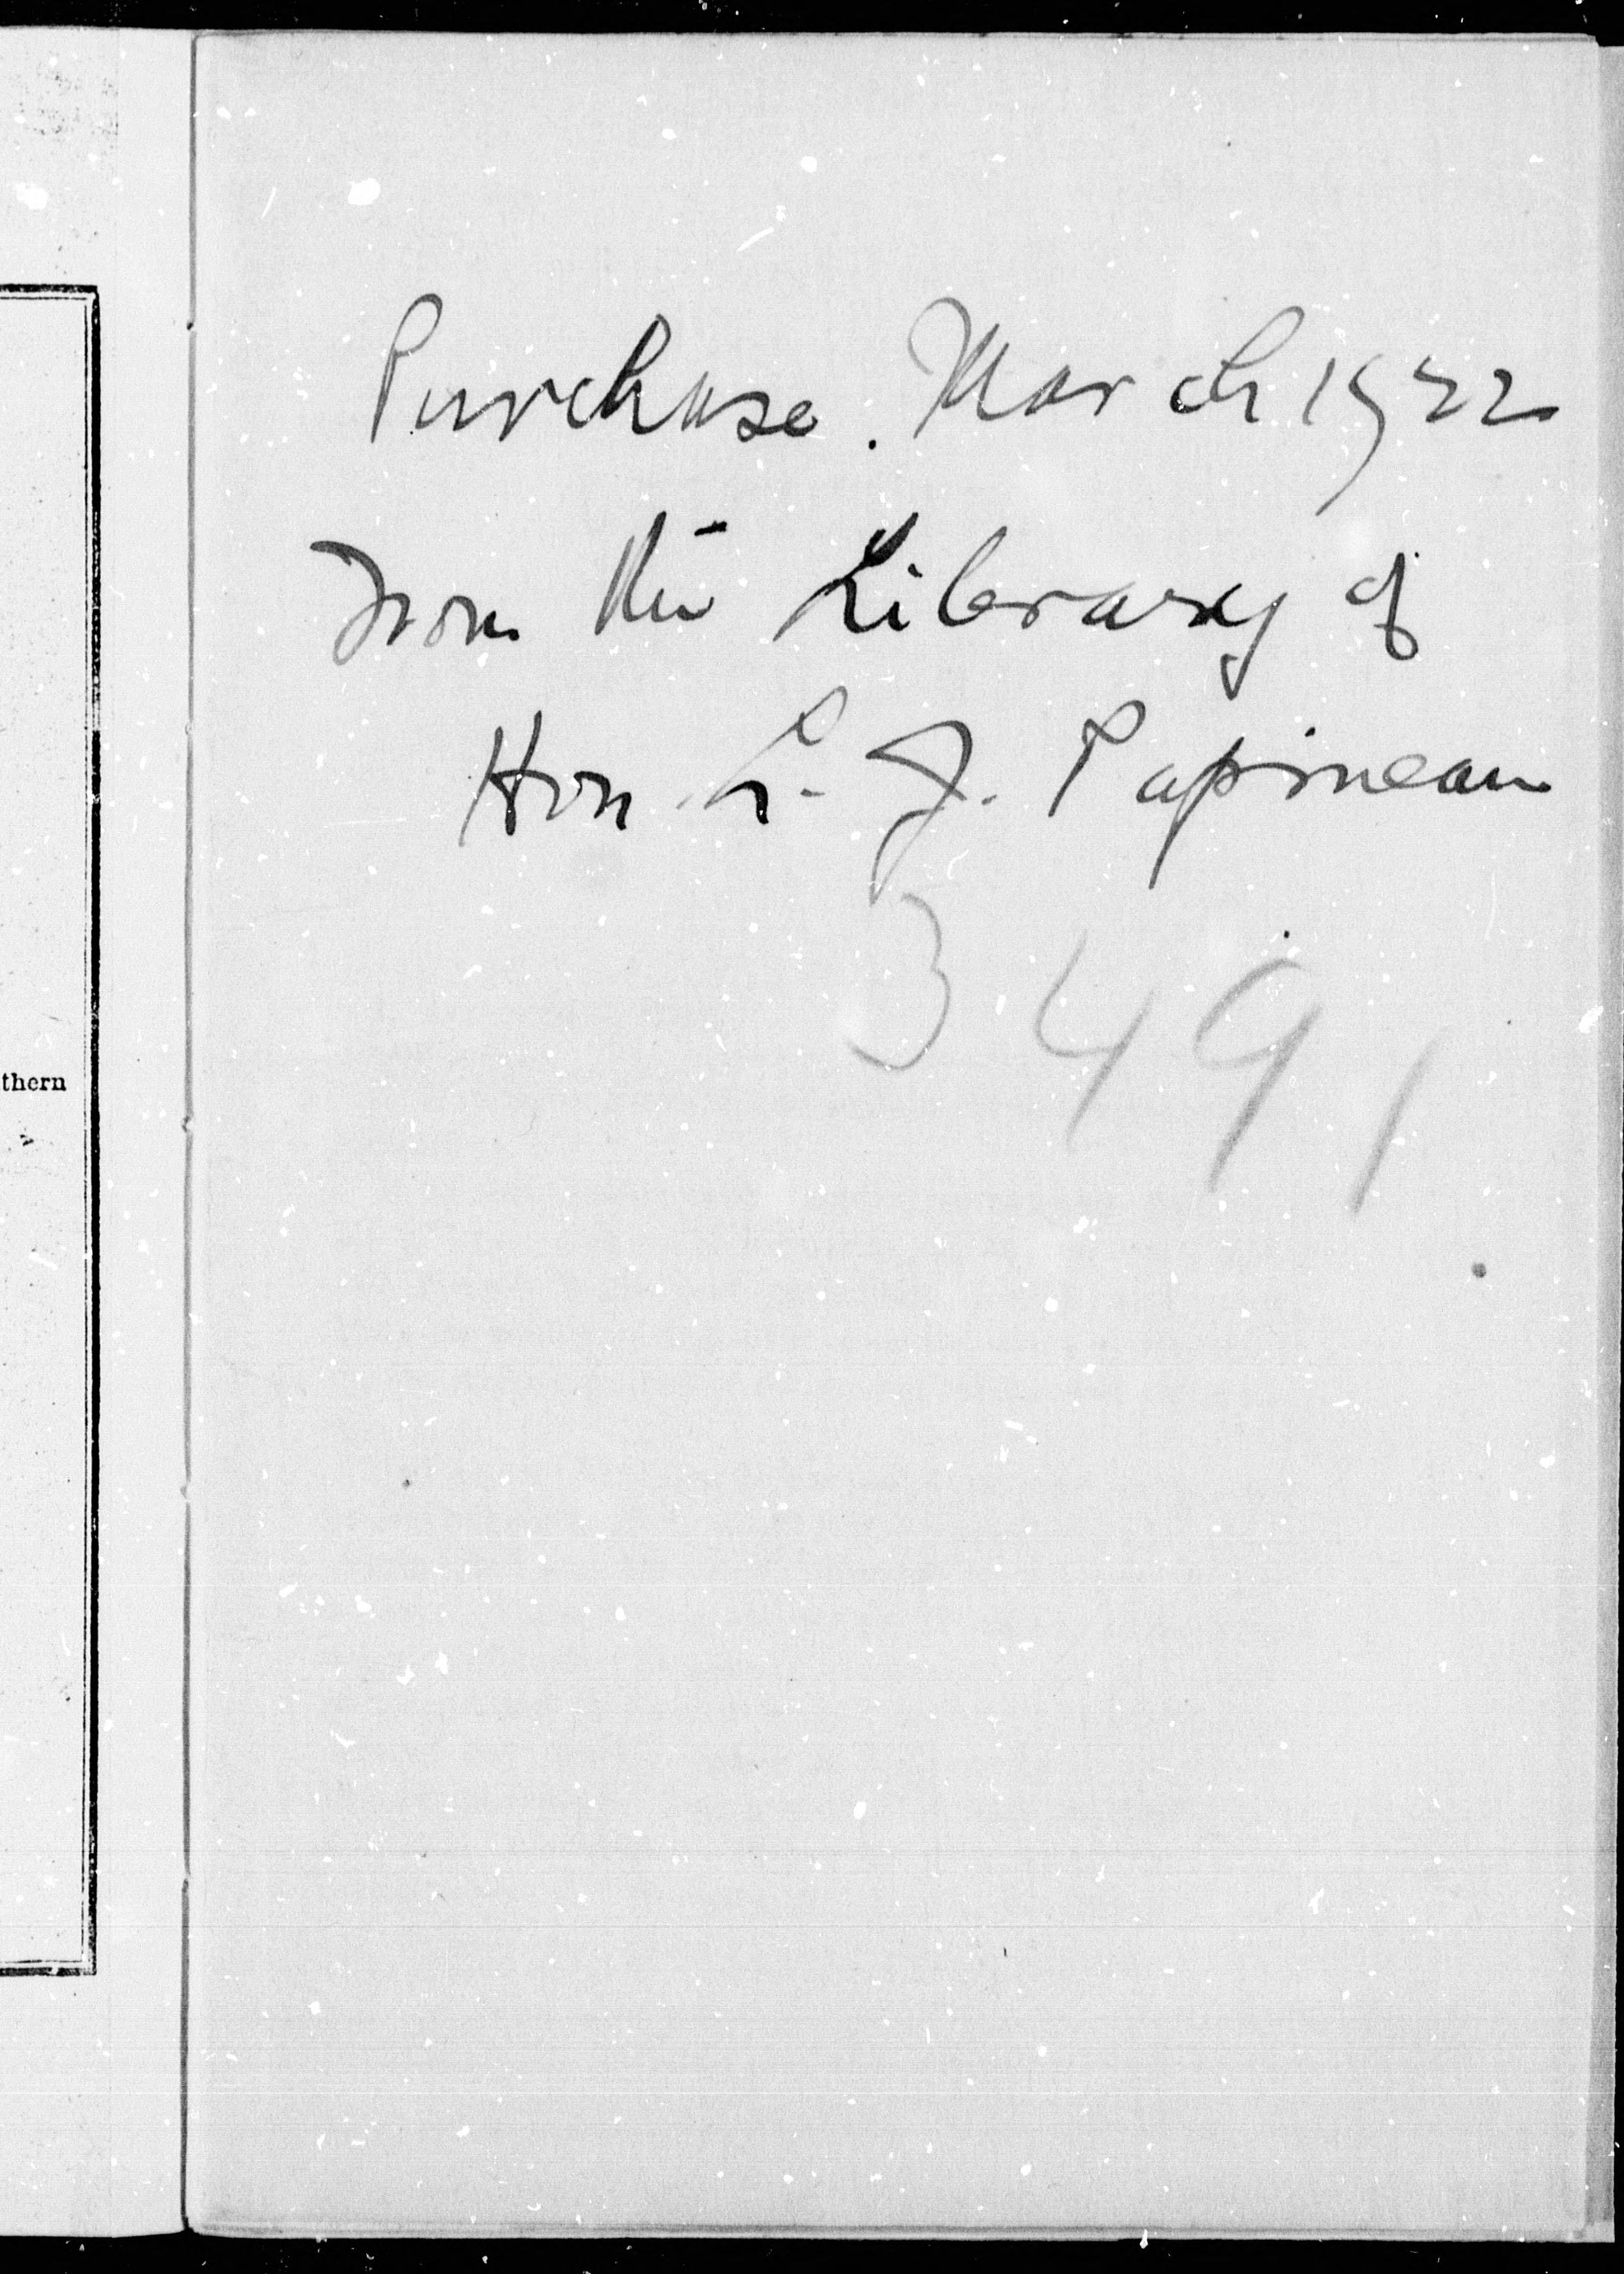 thern
Purchase. March 1922
From the Library of
Hon. L. J. Papineau
3491